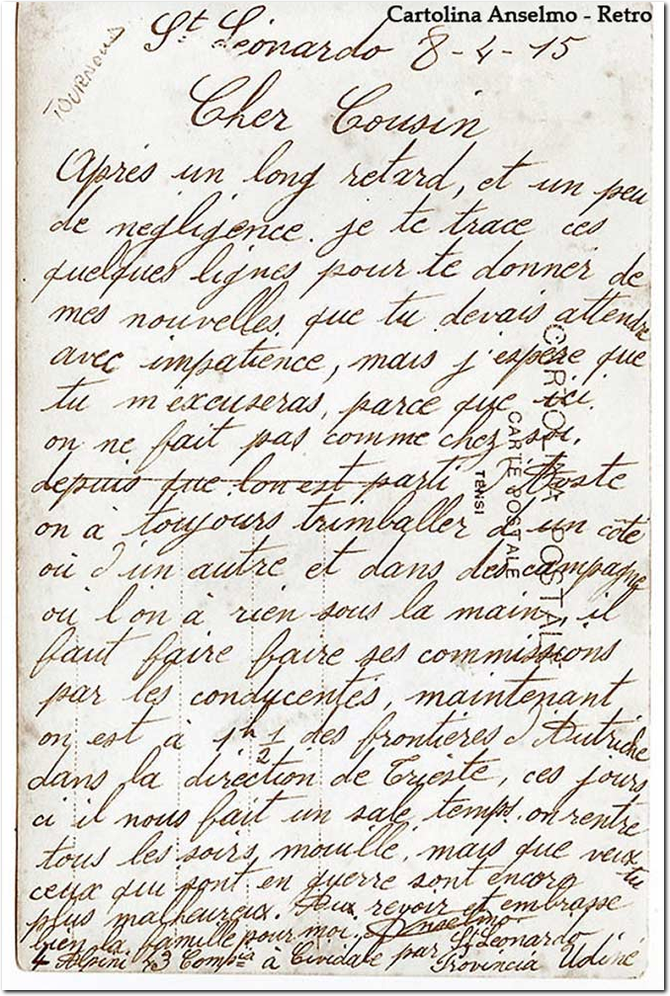 Cartolina Anselmo - Retro
TOURNOUS
St Léonardo 8-4-15
Cher Cousin
Après un long retard, et un peu
de negligence. je te trace ces
quelques lignes pour te donner de
mes nouvelles. que tu devais attendre
avec impatience, mais j'espère que
tu m'excuseras, parce que ici.
on ne fait pas comme chez soi.
depuis que lon est parti d'Aoste
on à toujours trimballer d'un côté
où d'un autre et dans des campagne
où l'on à rien sous la main, il
faut faire faire ses commissions
par les conducentés, maintenant
on est à 1h 1/2 des frontières d'Autriche
dans la direction de Trieste, ces jours
ci il nous fait un sale temps. on rentre
tous les soirs mouillé, mais que veux-tu
ceux qui sont en guerre sont encore
plus malheureux. Aux revoir et embrasse
bien la famille pour moi. Anselmo
4 Alpini 43 Compia à Cividale par St Leonardo
Provincia Udine
CARTOLINA POSTALE
CARTE POSTALE
TENSI